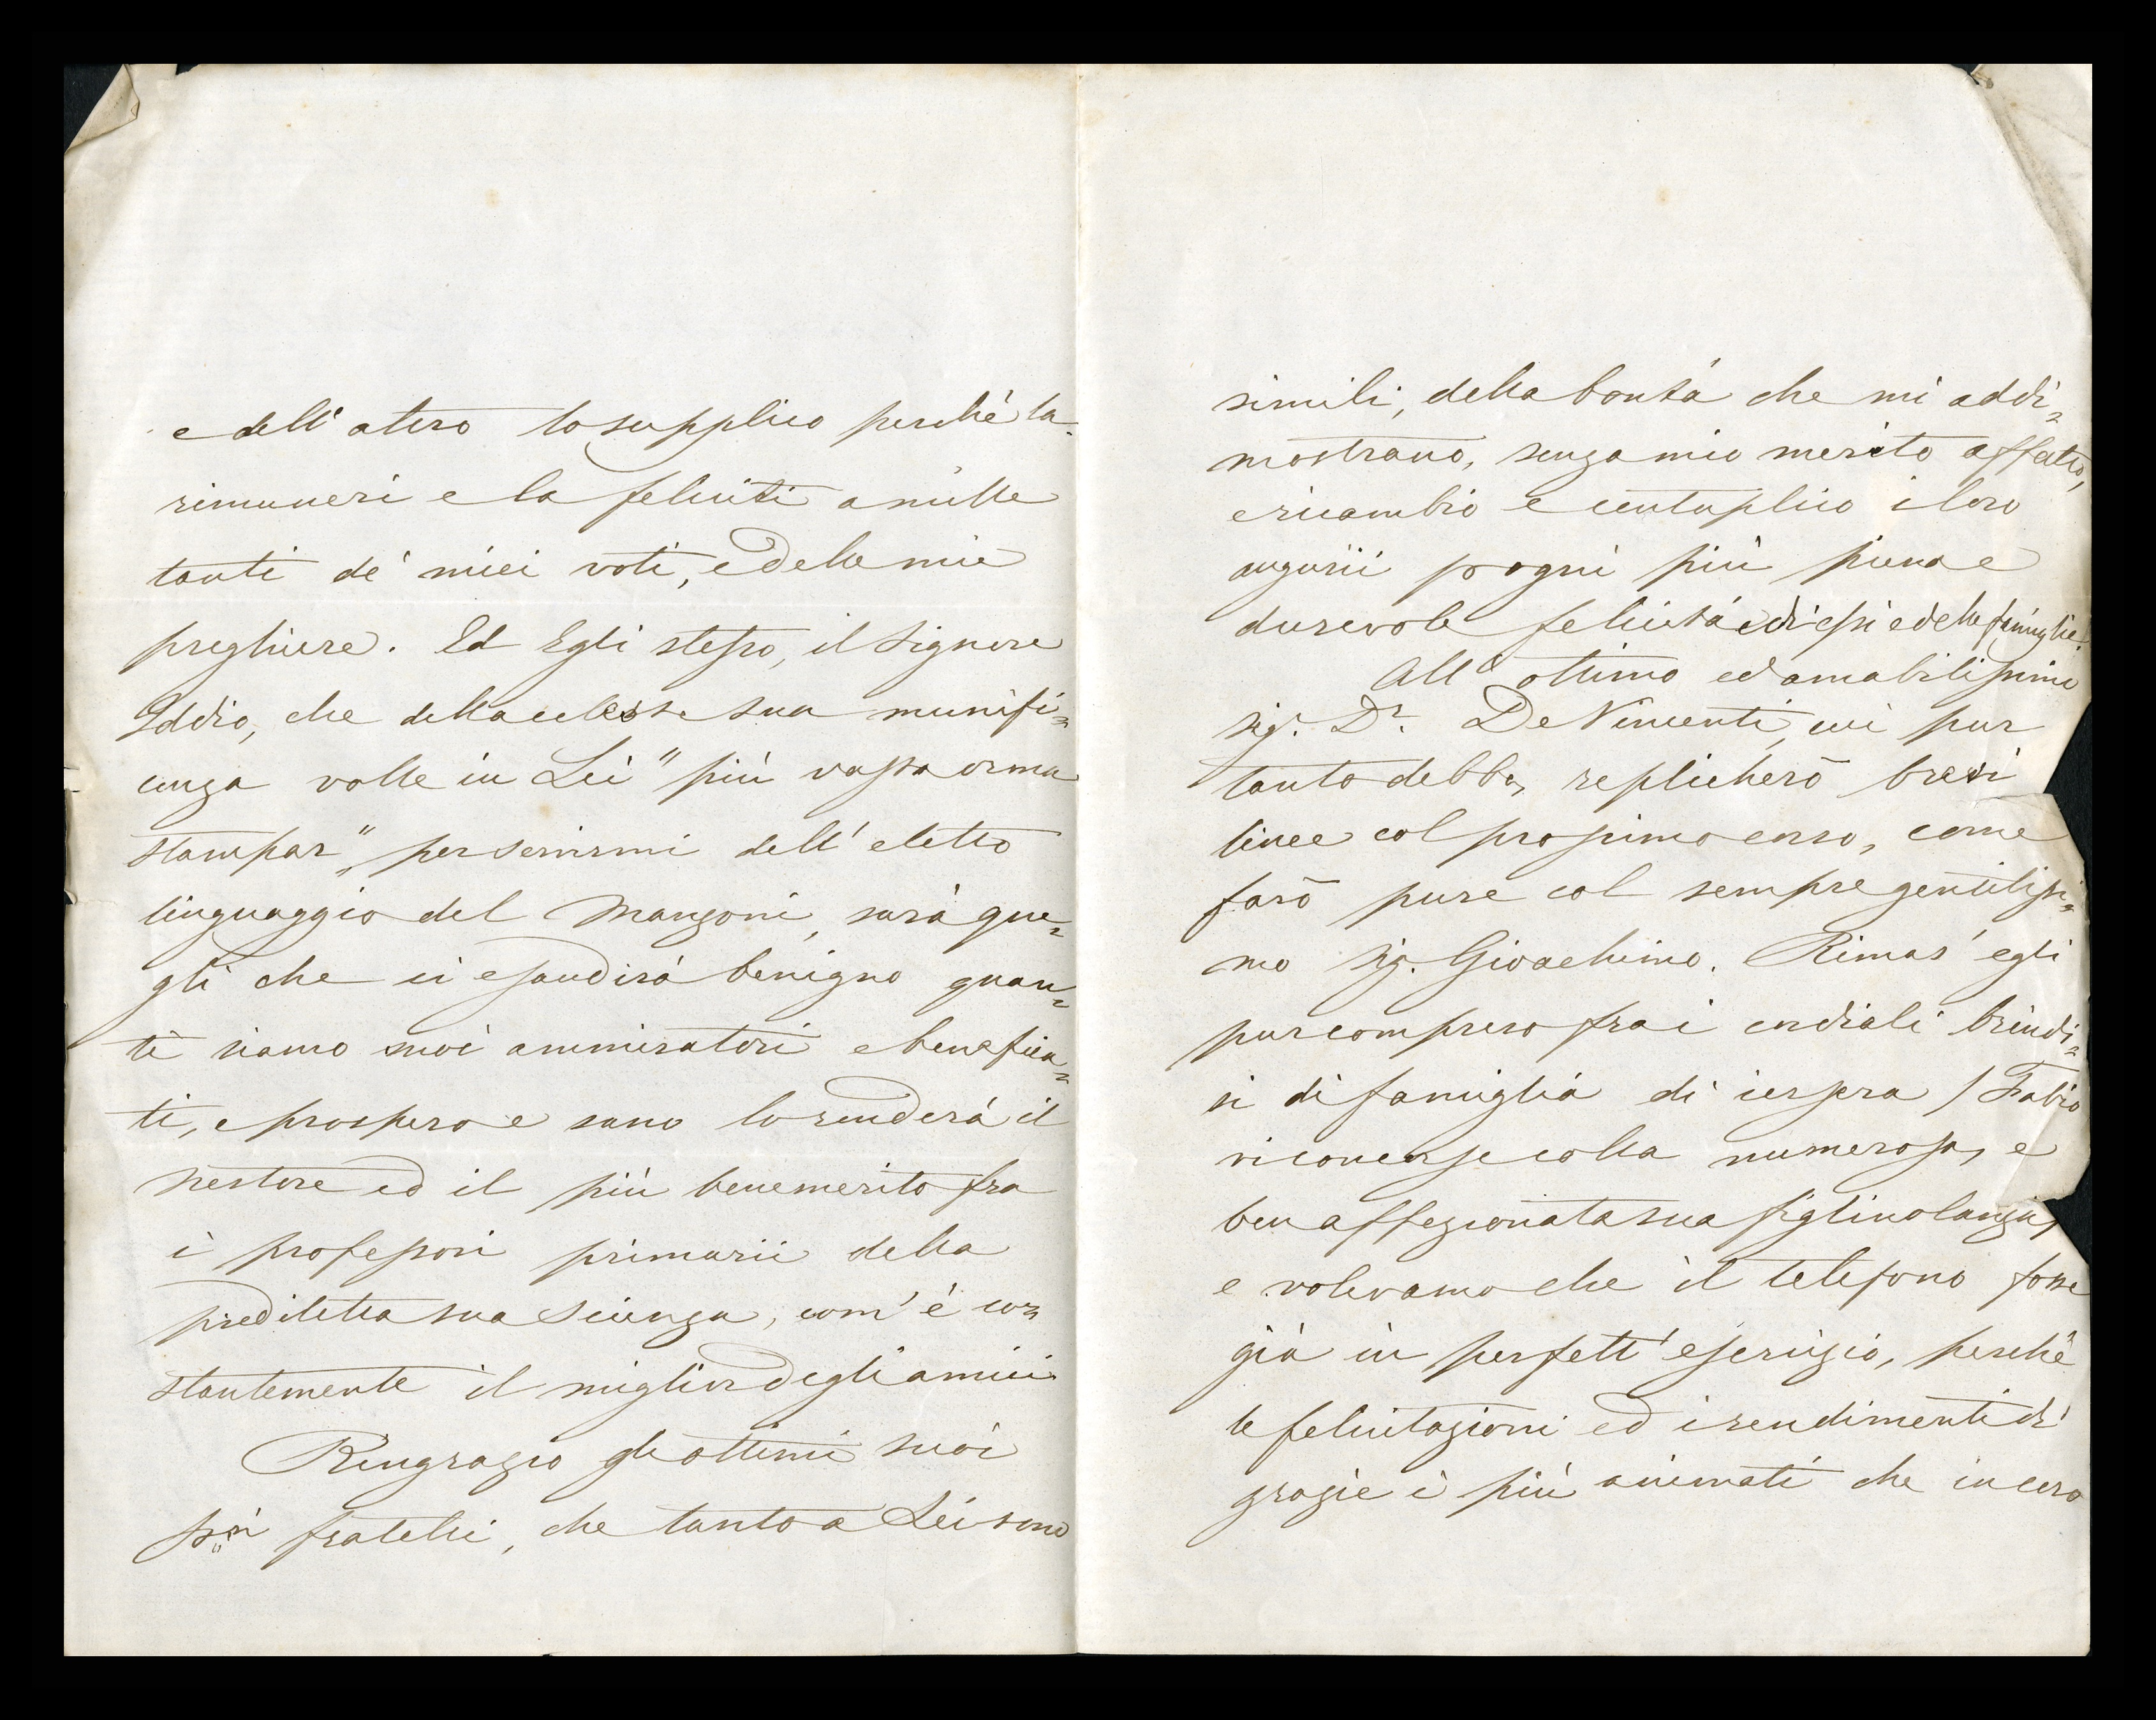 e dell'altro lo supplico perchè la
rimuneri e la feliciti a mille
tanti de' miei voti, e delle mie
preghiere. Ed Egli stesso, il Signore
Iddio, che della celeste sua munifi=
cenza volle in Lei "più vasta orma
stampar", per servirmi dell'eletto
linguaggio del Manzoni, sarà que=
gli che ci esaudirà benigno quan=
ti siamo suoi ammiratori e beneficia=
ti, e prospero e sano lo renderà il
Nestore ed il più benemerito fra
i professori primarii della
prediletta sua scienza, com'è con
stantemente il miglior degli amici.
Ringrazio gli ottimi suoi
fratelli, che tanto a Lei sono
simili, della bontà che mi addi=
mostrano, senza mio merito affatto,
e ricambio e centuplico i loro
augurii p ogni più piena e
durevole felicità e di essi e delle famiglie.
All'ottimo ed amabilissimo
sig. Dr. De Vincenti, cui pur
tanto debbo, replicherò brevi
linee col prossimo corso, come
farò pure col sempre gentilissi=
mo sig. Gioachimo. Rimas' egli
pur compreso fra i cordiali brindi=
si di famiglia di iersera / Fabio
vi convenne colla numerosa, e
ben affezionata sua figliuolanza,
e volevamo che il telefono fosse
già in perfett'esercizio, perchè
le felicitazioni ed i rendimenti di
grazie i più animati che in cero